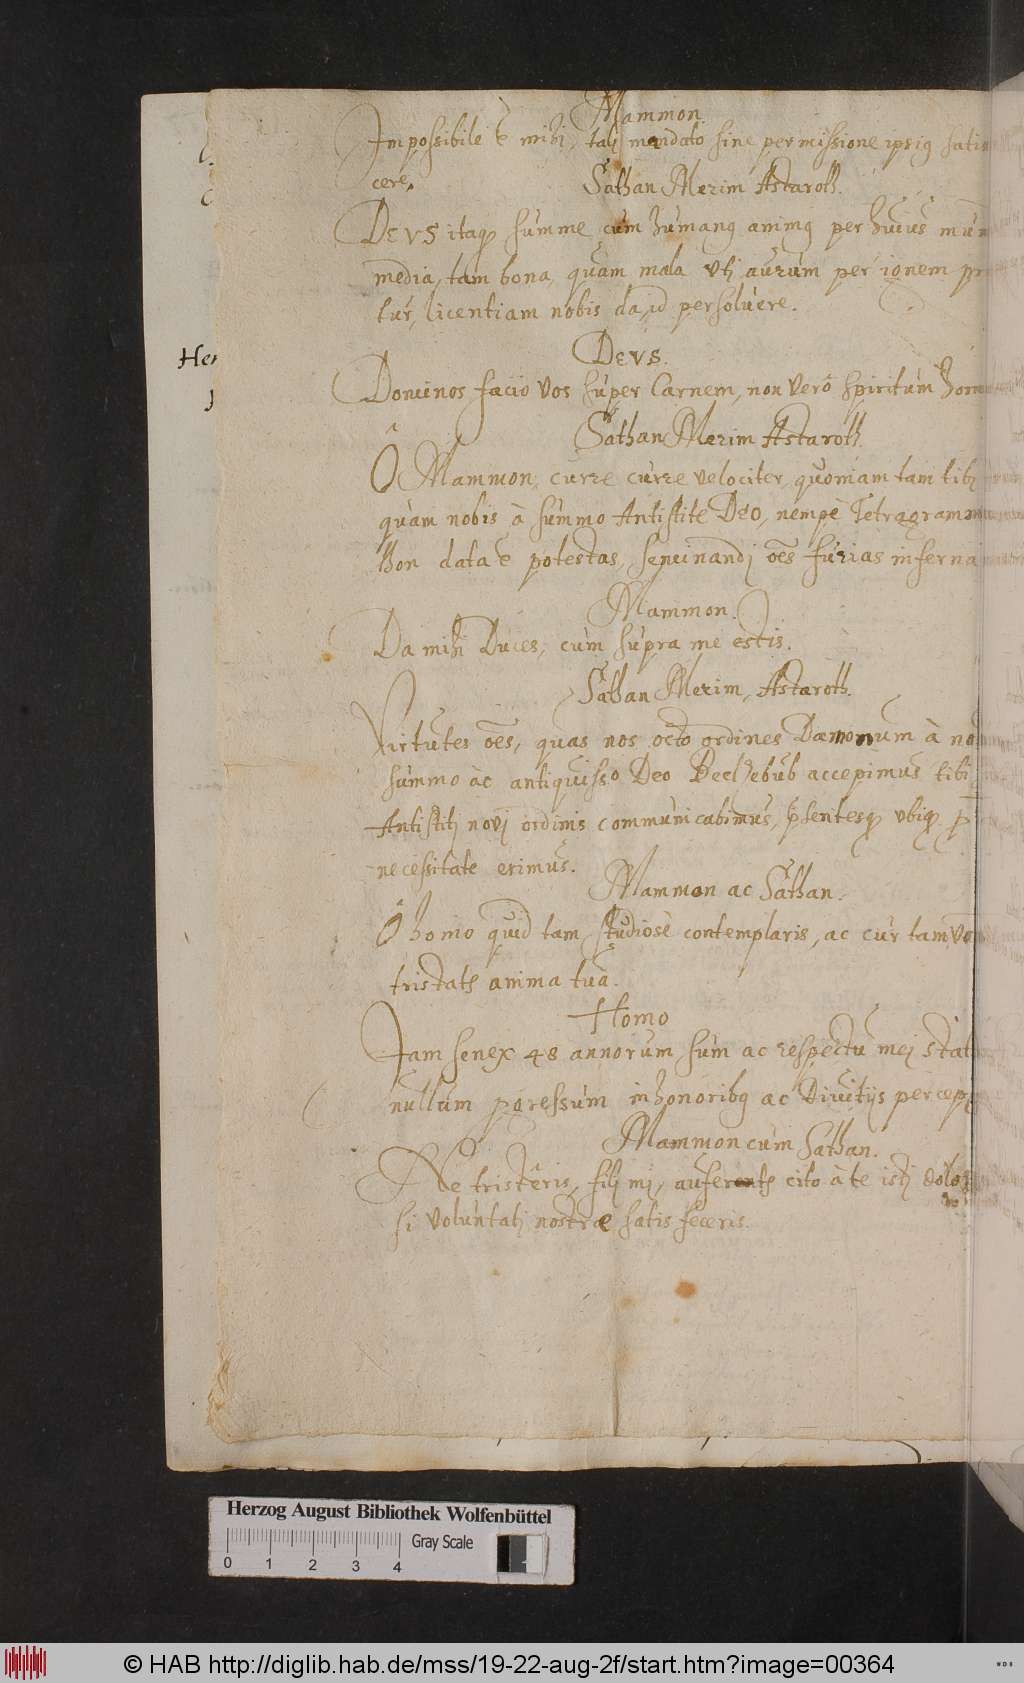 Mammon.
Impossibile ē mihi, talj mandato sine permissione ipsiꝰ satis
cere.
Sathan Merim Astaroth.
DEVS itaq; summe cum humanæ animæ per huius mun
media, tam bona, quàm mala vti aurum per ignem pr
tur, licentiam nobis da id persoluere.
DEVS.
Dominos facio vos super Carnem, non verò spiritum hom
Sathan Merim Astaroth.
Ô Mammon, curre curre velociter, quoniam tam tibj
quàm nobis à summo Antistite Deo, nempè Tetragramm
thon data ē potestas, seminandj oēs furias inferna
Mammon.
Da mihi Duces, cum supra me estis.
Sathan Merim, Astaroth.
Virtutes oēs, quas nos octo ordines Dæmonum à no
summo àc antiquisso Deo Beelzebub accepimus tibi
Antistitj novj ordinis communicabimus, p̃sentesq; vbiq;
necessitate erimus.
Mammon ac Sathan.
Ô homo quid tam studiosè contemplaris, ac cur tam
tristats anima tua.
Homo
Jam senex 48 annorum sum ac respectu mej stat
nullum pgressum in honoribꝰ ac Divitijs percep
Mammon cum Sathan.
Ne tristêris, filj mj, auferents cito à te istj dolo
si voluntatj nostræ satis feceris.
Her
Herzog August Bibliothek Wolfenbüttel
Gray Scale
0 1 2 3 4
© HAB http://diglib.hab.de/mss/19-22-aug-2f/start.htm?image=00364